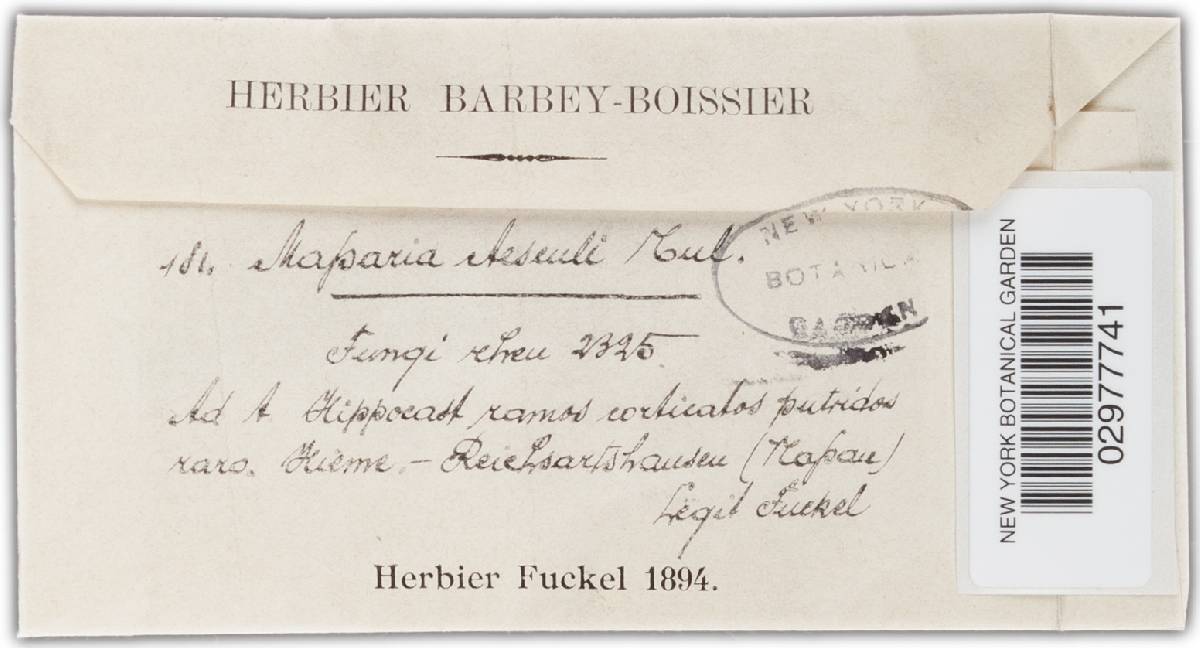 HERBIER BARBEY-BOISSIER
181. Massaria Aesculi Tul.
Fungi rhen 2325
Ad A. Hippocast ramos corticatos putridos
raro. Hieme. – Reichartshausen (Nassau)
Legit Fuckel
Herbier Fuckel 1894.
NEW YORK
BOTANICAL
GARDEN
NEW YORK BOTANICAL GARDEN
02977741